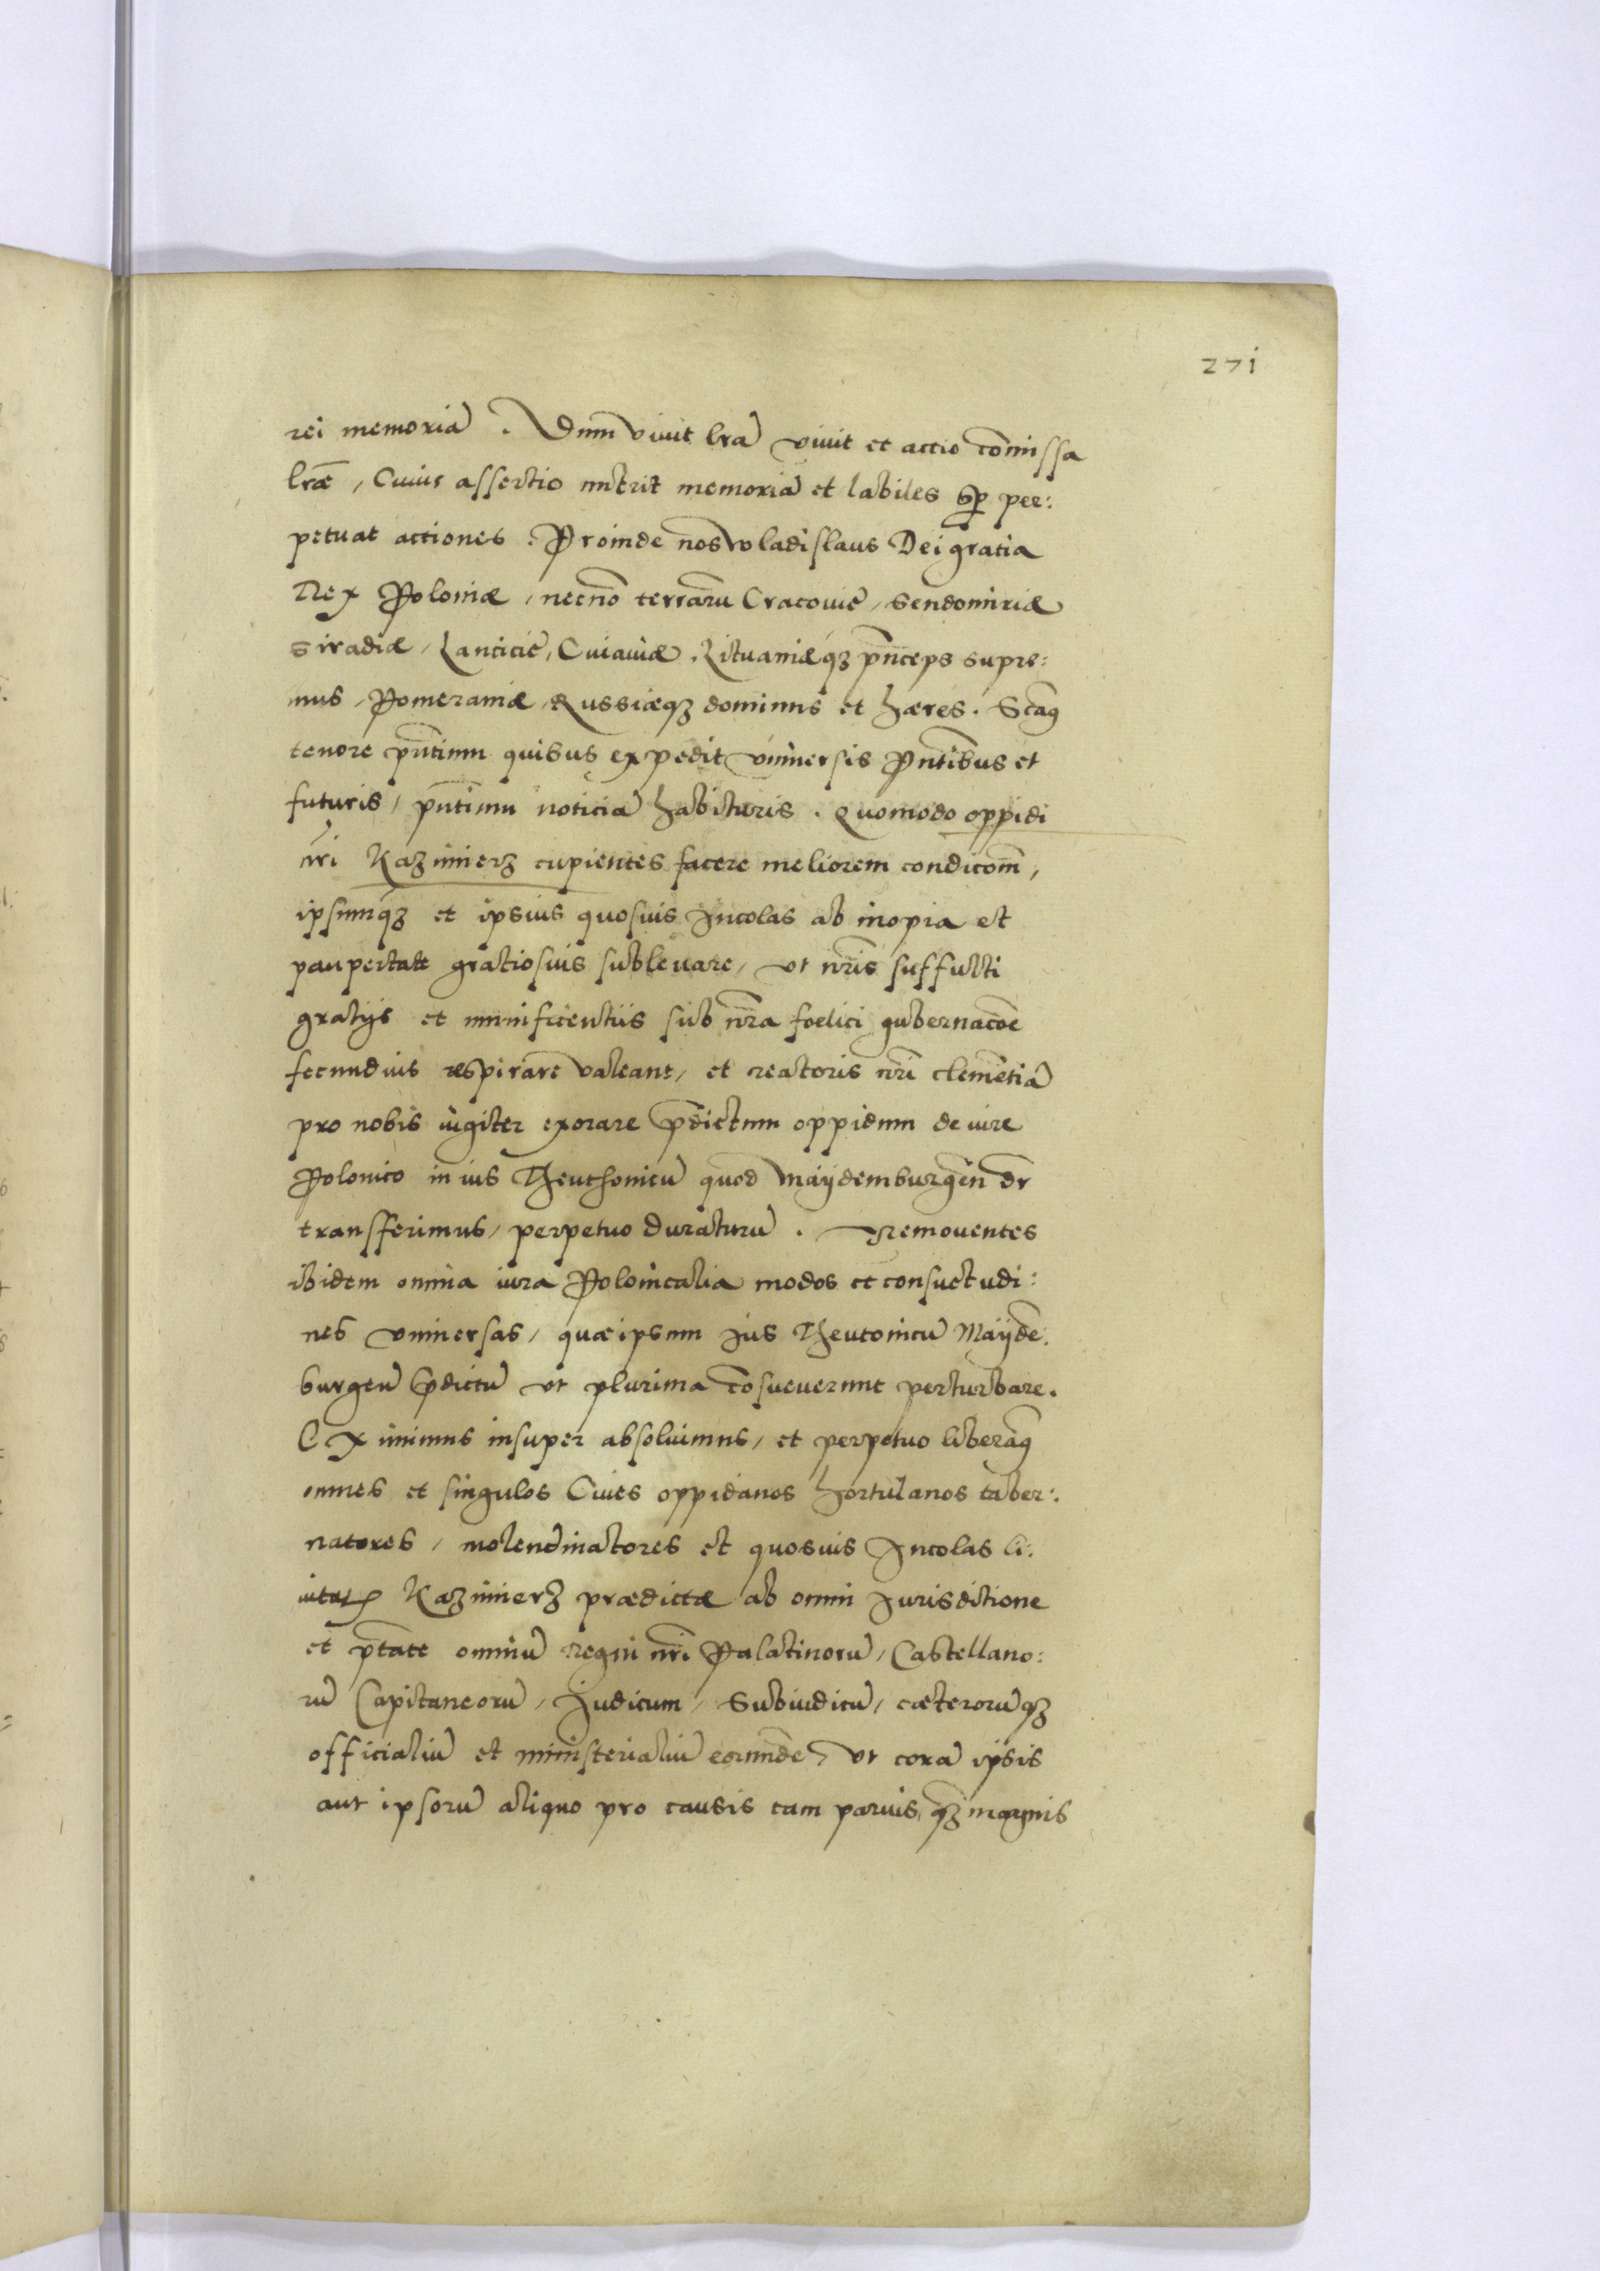 271
rei memoriā . Dum vivit lr̄a vivit et actio cōmissa
lrǣ , Cuius assertio nutrit memoriā et labiles sꝑ per:
petuat actiones . Proinde nos wladislaus Dei gratia
Rex Poloniæ , necnō terrarū Cracovie , Sendomiriæ
Siradiæ , Lanticie , Cuiaviæ , Lituaniæqꝫ pn̄ceps supre:
mus , Pomeraniæ , Russiæqꝫ dominus et hæres .
tenore pn̄tium quibus expedit vniversis Pn̄tibus et
futuris , pn̄tium noticiā habituris . Quomodo oppidi
nr̄i Kazimierz cupientes facere meliorem condicōm̄ ,
ipsumqꝫ et ipsius quosuis Incolas ab inopia et
paupertate gratiosius sublevare , ut nr̄is suffulti
gratijs et munificentiis sub nr̄a foelici gubernacōe
fecundius respirare valeant , et creatoris nr̄i clemētiā
pro nobis iugiter exorare p̄dictum oppidum de iure
Polonico in ius Theuthonicū quod Maÿdemburgēn dr̄
transferimus , perpetuo duraturū . Removentes
ibidem omnia iura Polonicalia modos et consuetudi:
nes vniversas , quæ ipsum Jus Theutonicū Maÿdē:
burgeñ p̄dictū ut plurima cōsueverunt perturbare .
Eximimus insuper absolvimus , et perpetuo liberāꝰ
omnes et singulos Cives oppidanos hortulanos taber:
natores , molendinatores et quosvis Incolas Ci:
vitatis Kazimierz prædictæ ab omni Jurisditione
et p̄tāte omniū regni nr̄i Palatinorū , Castellano:
rū Capitaneorū , Judicum , Subiudicū , cæterorūqꝫ
officialiū et ministerialiū eorundē , ut corā ipsis
aut ipsorū aliquo pro causis tam parvis , qꝫ magnis